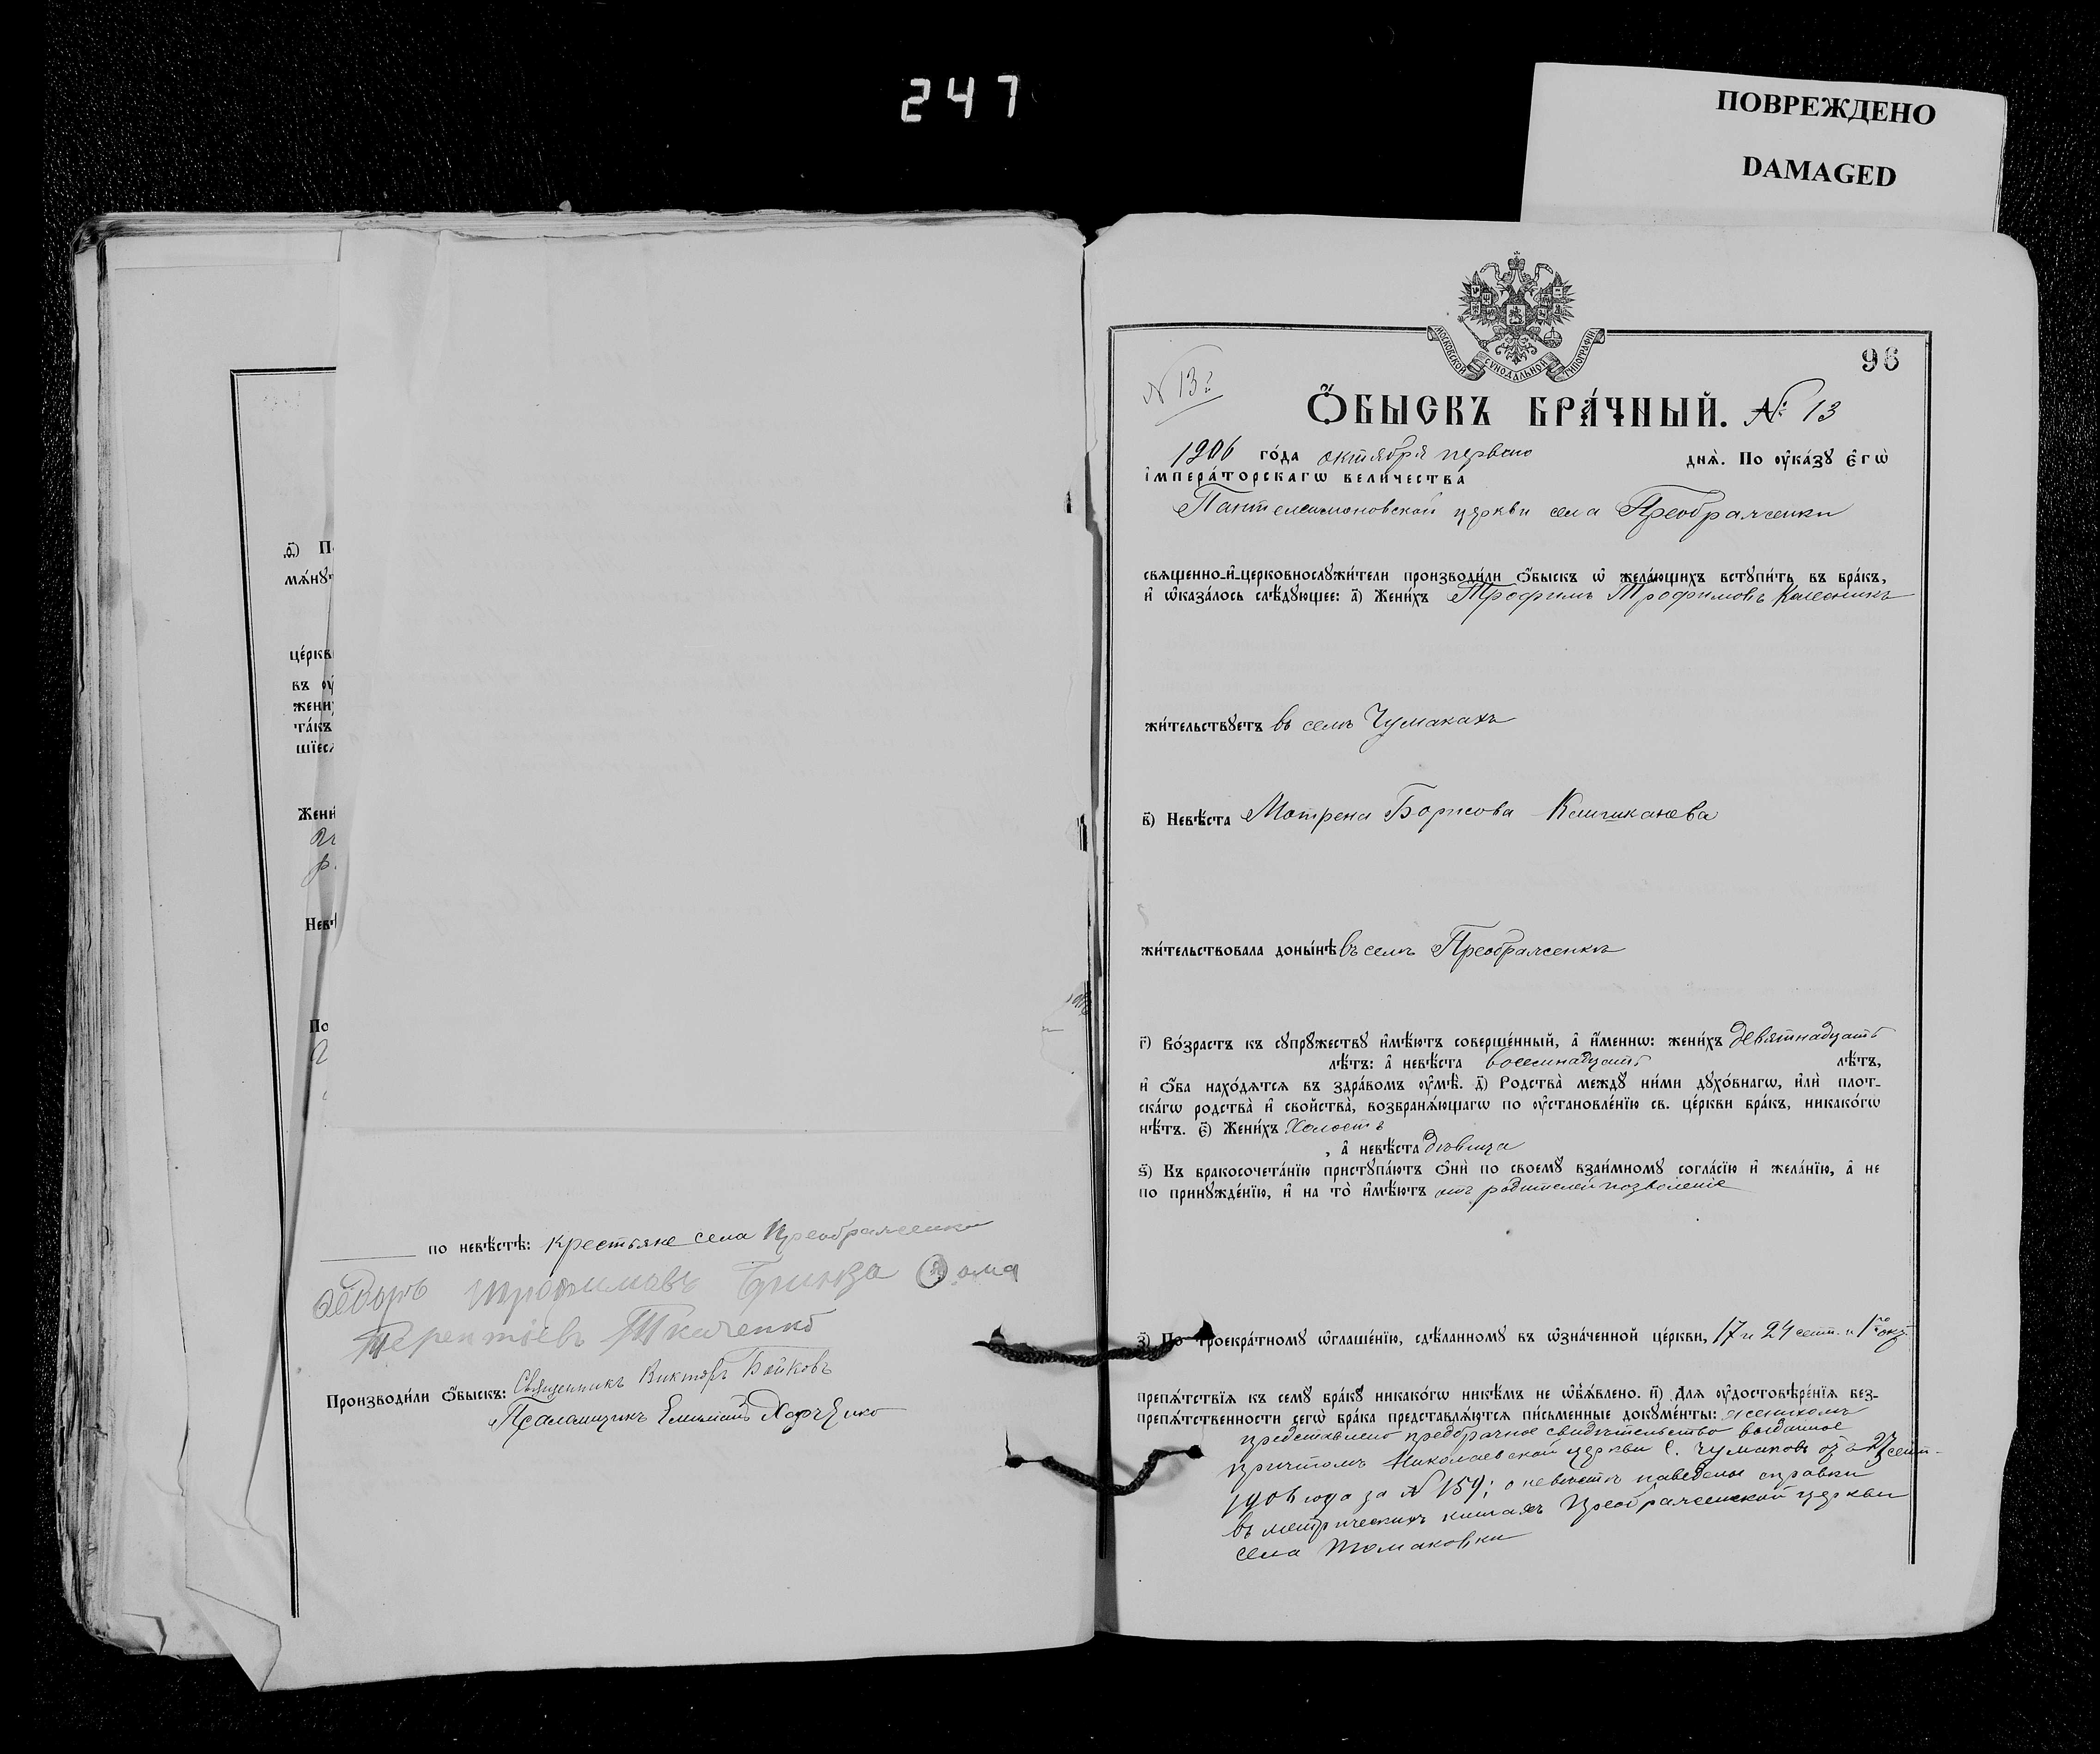 247
ПОВРЕЖДЕНО
DAMAGED
а҃) П
мѧ́нꙋ
це́ркв
въ оу҆
жени
та́къ
шїес
Жени
Невѣ
По
по невѣ́стѣ: крестьяне села Преображенки
Ѳедоръ Трофимовъ Ѳома
Терентіевъ Ткаченко
Производи́ли ѻ҆́быскъ: Священникъ Викторъ Бойковъ
Псаломщикъ Харченко
МОСКОВСКОЙ СѴНОДАЛЬНОЙ ТИПОГРАФІИ
96
N 13
Ѻ҆́БЫСКЪ БРА́ЧНЫЙ. № 13
1906 го́да октября перваго днѧ̀. По оу҆ка́зꙋ є҆гѡ̀
і҆мпера́торскагѡ вели́чества
Пантелеимоновской церкви села Преображенки
свѧщенно-и҆-церковнослꙋжи́тели производи́ли ѻ҆́быскъ ѡ҆ жела́ющихъ встꙋпи́ть въ бра́къ,
и҆ ѡ҆каза́лось слѣ́дꙋющее: а҃) Жени́хъ Трофимъ Трофимовъ Колесникъ
жи́тельствꙋетъ въ селѣ Чумакахъ
в҃) Невѣ́ста Мотрена Борисова
жи́тельствовала доны́нѣ въ селѣ Преображенкѣ
г҃) Во́зрастъ къ сꙋпрꙋ́жествꙋ и҆мѣ́ютъ соверше́нный, а҆ и҆́меннѡ: жени́хъ девятнадцать
лѣ́тъ: а҆ невѣ́ста восемнадцать лѣ́тъ,
и҆ ѻ҆́ба нахо́дѧтсѧ въ здра́вомъ оу҆мѣ̀. д҃) Родства̀ междꙋ ни́ми дꙋхо́внагѡ, и҆лѝ плот-
ска́гѡ родства̀ и҆ сво́йства̀, возбранѧ́ющагѡ по оу҆становле́нїю св. це́ркви бра́къ, никако́гѡ
нѣ́тъ. є҃) Жени́хъ холостъ
, а҆ невѣ́ста дѣвица
ѕ҃) Къ бракосочета́нїю пристꙋпа́ютъ ѻ҆нѝ по своемꙋ̀ взаи́мномꙋ согла́сїю и҆ жела́нїю, а҆ не
по принꙋжде́нїю, и҆ на то̀ и҆мѣ́ютъ отъ родителей позволеніе
з҃) По троекра́тномꙋ ѡ҆глаше́нїю, сдѣ́ланномꙋ въ ѡ҆зна́ченной це́ркви, 17 и 24 сент. и 1го окт.
препѧ́тствїѧ къ семꙋ̀ бра́кꙋ никако́гѡ никѣ́мъ не ѡ҆б̾ѧ́влено. и҃) Длѧ оу҆достовѣре́нїѧ без-
препѧ́тственности сегѡ̀ бра́ка представлѧ́ютсѧ пи́сьменные докꙋме́нты: женихомъ
представлено предбрачное свидѣтельство выданное
причтомъ Николаевской церкви с. Чумаковъ отъ 27 сент.
1906 года за N 159; о невѣстѣ наведены справки
въ метрическихъ книгахъ Преображенской церкви
села Томаковки